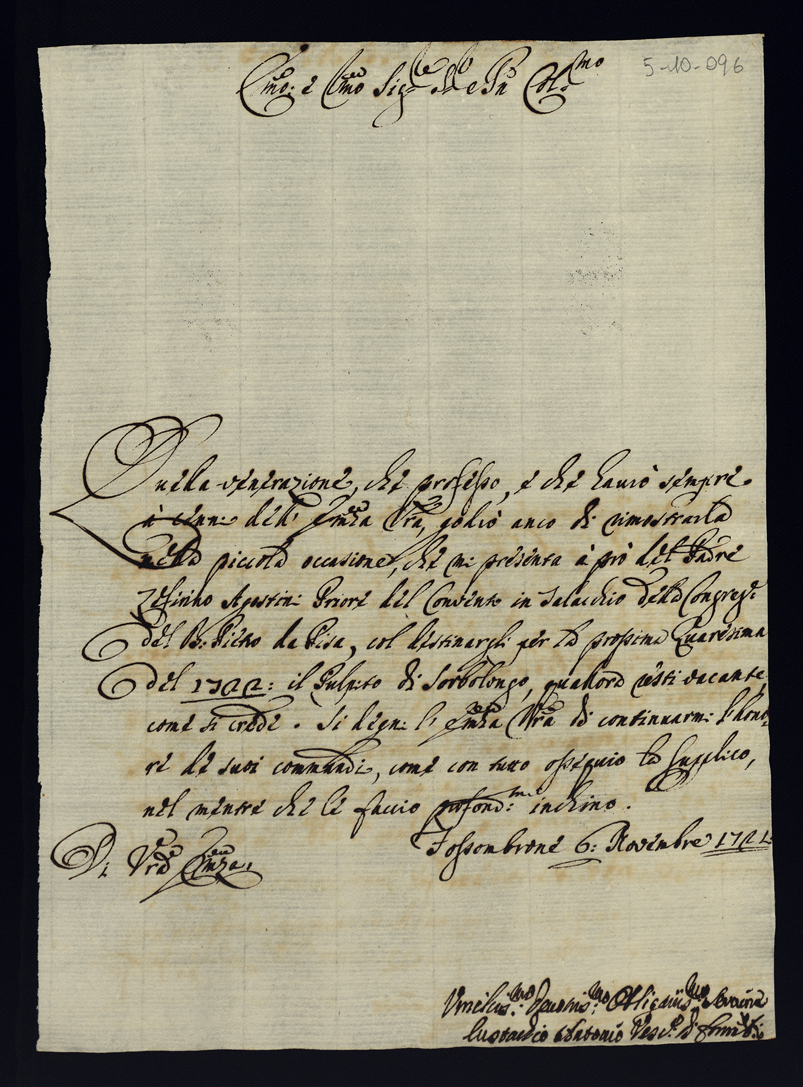 5-10-096
Em̃o: e Rm̃o Sig.re e Pñ Col.mo
Quella venerazione, che professo, e che havrò sempre
à cenni dell' Em̃za Vrã, godrò anco di rimostrarla
nella piccola occasione, che mi presenta à prò del Padre
Zefirino Agostini Priore del Convento in Talacchio della Congreg.e
del B: Pietro da Pisa, col destinargli per la prossima Quaresima
del 1722: il Pulpito di Sorbolongo, qualora resti vacante,
come si crede. Si degni l' Em̃za Vrã di continuarmi l'hono-
re de suoi commandi, come con tutto ossequio la supplico,
nel mentre che le faccio profond.me inchino.
Di Vrã Em̃za,
Fossombrone 6: Novembre 1721:
Umiliss.mo Devotis.mo Obligatis.mo Servitore
Eustachio Vesc.o di